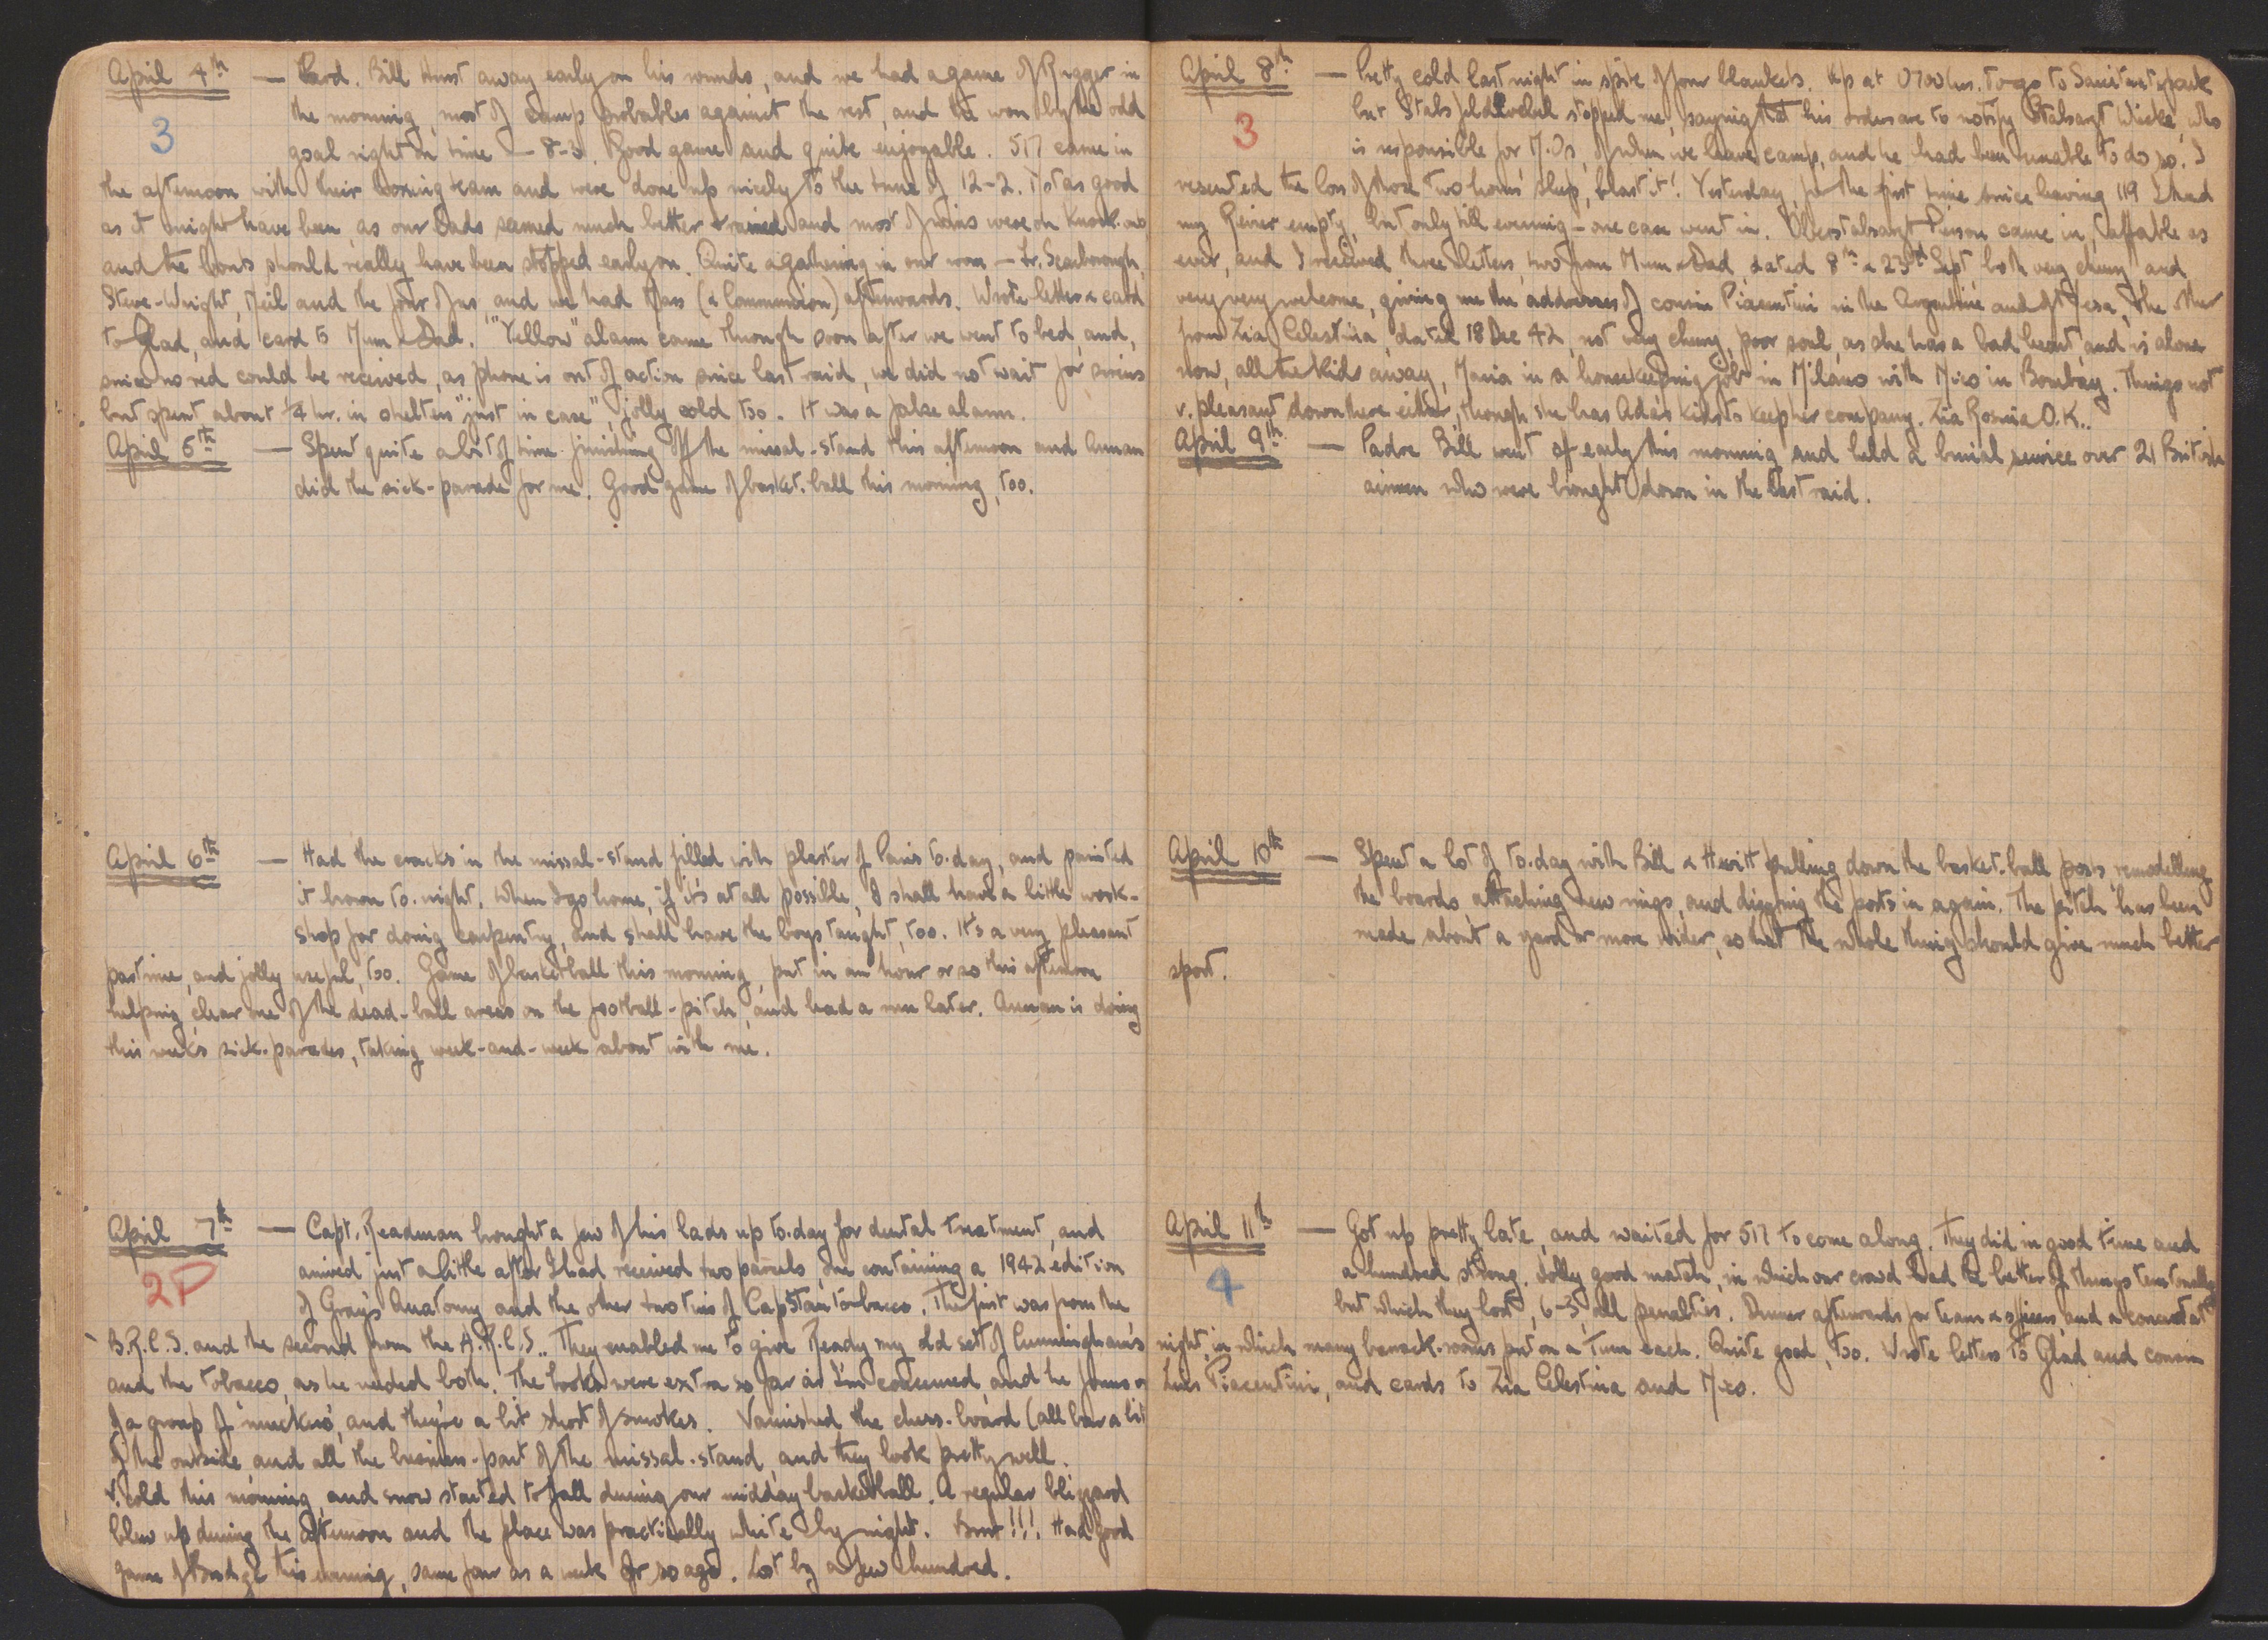 April 4th — Bill Hurst away early on his rounds, and we had a game of Rugger in
3
the morning, most of camp probables against the rest, and we won by the odd
goal right on time — 8-3. Good game and quite enjoyable. 517 came in
the afternoon with their boxing team and were done up nicely to the tune of 12-2. Not as good
as it might have been, as our lads seemed much better trained and most of wins were on knock-outs
and the bouts should really have been stopped early on. Quite a gathering in our room — Lt. Scarborough,
Steve-Wright, Neil and the four of us, and we had Mass (& Communion) afterwards. Wrote letter & card
to Glad, and card to Mum & Dad. "Yellow" alarm came through soon after we went to bed, and,
since no red could be received, as phone is out of action since last raid, we did not wait for sirens
but spent about ¼ hr. in shelters "just in case", jolly cold too. It was a false alarm.
April 5th — Spent quite a bit of time finishing off the missal-stand this afternoon and Annan
did the sick-parade for me. Good game of basket-ball this morning, too.
April 6th — Had the cracks in the missal-stand filled with plaster of Paris to-day, and painted
it brown to-night. When I go home, if it's at all possible, I shall have a little work-
shop for doing carpentry, and shall have the boys taught, too. It's a very pleasant
pastime, and jolly useful, too. Game of basketball this morning, put in an hour or so this afternoon
helping clear one of the dead-ball areas on the football-pitch, and had a run later. Annan is doing
this week's sick-parades, taking week-and-week about with me.
April 7th — Capt. Readman brought a few of his lads up to-day for dental treatment, and
2P
arrived just a little after I had received two parcels, one containing a 1942 edition
of Gray's Anatomy and the other two tins of Capstan tobacco. The first was from the
B.R.C.S. and the second from the A.R.C.S.. They enabled me to give Ready my old set of Cunningham's
and the tobacco, as he needed both. The books were extra so far as I'm concerned, and he forms one
of a group of 'muckers', and they're a bit short of smokes. Varnished the chess-board (all bar a bit
of the outside) and all the business-part of the missal-stand, and they look pretty well.
V. cold this morning, and snow started to fall during our midday basketball. A regular blizzard
blew up during the afternoon and the place was practically white by night. Brrr!!! Had good
game of Bridge this evening, same four as a week or so ago. Lost by a few hundred.
April 8th — Pretty cold last night in spite of four blankets. Up at 0700 hrs. to go to
3
but Stabsfeldwebel stopped me, saying that his orders are to notify Stabsarzt Wicke, who
is responsible for M.Os, of when we leave camp, and he had been unable to do so. I
resented the loss of those two hours' sleep, blast it! Yesterday, for the first time since leaving 119 I had
my Revier empty, but only till evening – one case went in. Oberstabsarzt came in, affable as
ever, and I received three letters, two from Mum & Dad, dated 8th & 23rd Sept. both very cheery and
very very welcome, giving me the addresses of cousin Piacentini in the Argentine and of Tesa, the other
from Zia Celestina, dated 18 Dec 42, not very cheery, poor soul, as she has a bad heart, and is alone
now, all the kids away, Maria in a housekeeping job in Milano with Nico in Bombay. Things not
v. pleasant down there either, though she has Ada's kids to keep her company. Zia Rosina O.K..
April 9th — Padre Bill went off early this morning and held a burial service over 21 British
airmen who were brought down in the last raid.
April 10th — Spent a lot of to-day with Bill & Hewitt pulling down the basket-ball posts, remodelling
the boards, attaching new rings, and digging the posts in again. The pitch has been
made about a yard or more wider, so that the whole thing should give much better
sport.
April 11th — Got up pretty late, and waited for 517 to come along. They did in good time and
4
a hundred strong. Jolly good match, in which our crowd had the better of things territorially
but which they lost, 6-3, all penalties. Dinner afterwards for team & officers, and a concert at
night, in which many barrack-rooms put on a turn each. Quite good, too. Wrote letters to Glad and cousin
Luis Piacentini, and cards to Zia Celestina and Nico.